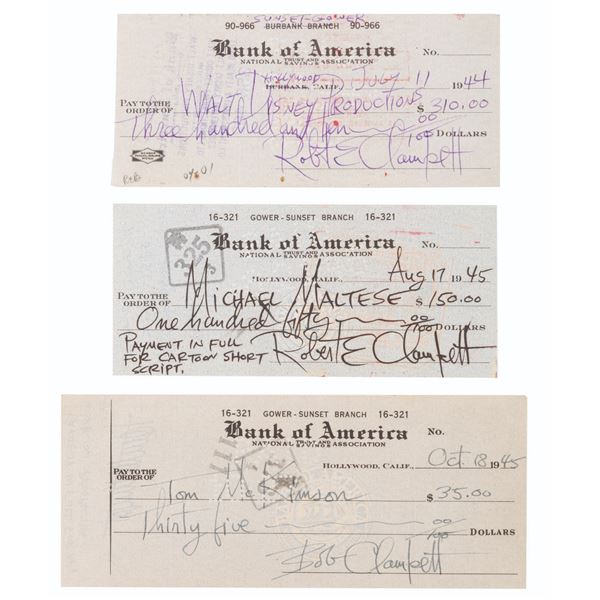 SUNSET-GOWER
90-966 BURBANK BRANCH 90-966
Bank of America No.
NATIONAL TRUST AND SAVINGS ASSOCIATION
HOLLYWOOD
BURBANK, CALIF., JULY 11 1944
PAY TO THE ORDER OF WALT DISNEY PRODUCTIONS $ 310.00
Three hundred and ten 00/100 DOLLARS
Robt E Clampett
16-321 GOWER-SUNSET BRANCH 16-321
Bank of America No.
NATIONAL TRUST AND SAVINGS ASSOCIATION
325
HOLLYWOOD, CALIF., Aug 17 1945
PAY TO THE ORDER OF MICHAEL MALTESE $ 150.00
One hundred fifty 00/100 DOLLARS
PAYMENT IN FULL
FOR CARTOON SHORT
SCRIPT.
Robert E Clampett
16-321 GOWER-SUNSET BRANCH 16-321
Bank of America No.
NATIONAL TRUST AND SAVINGS ASSOCIATION
HOLLYWOOD, CALIF., Oct 18 1945
PAY TO THE ORDER OF Tom McKimson $ 35.00
Thirty five 00/100 DOLLARS
Bob Clampett